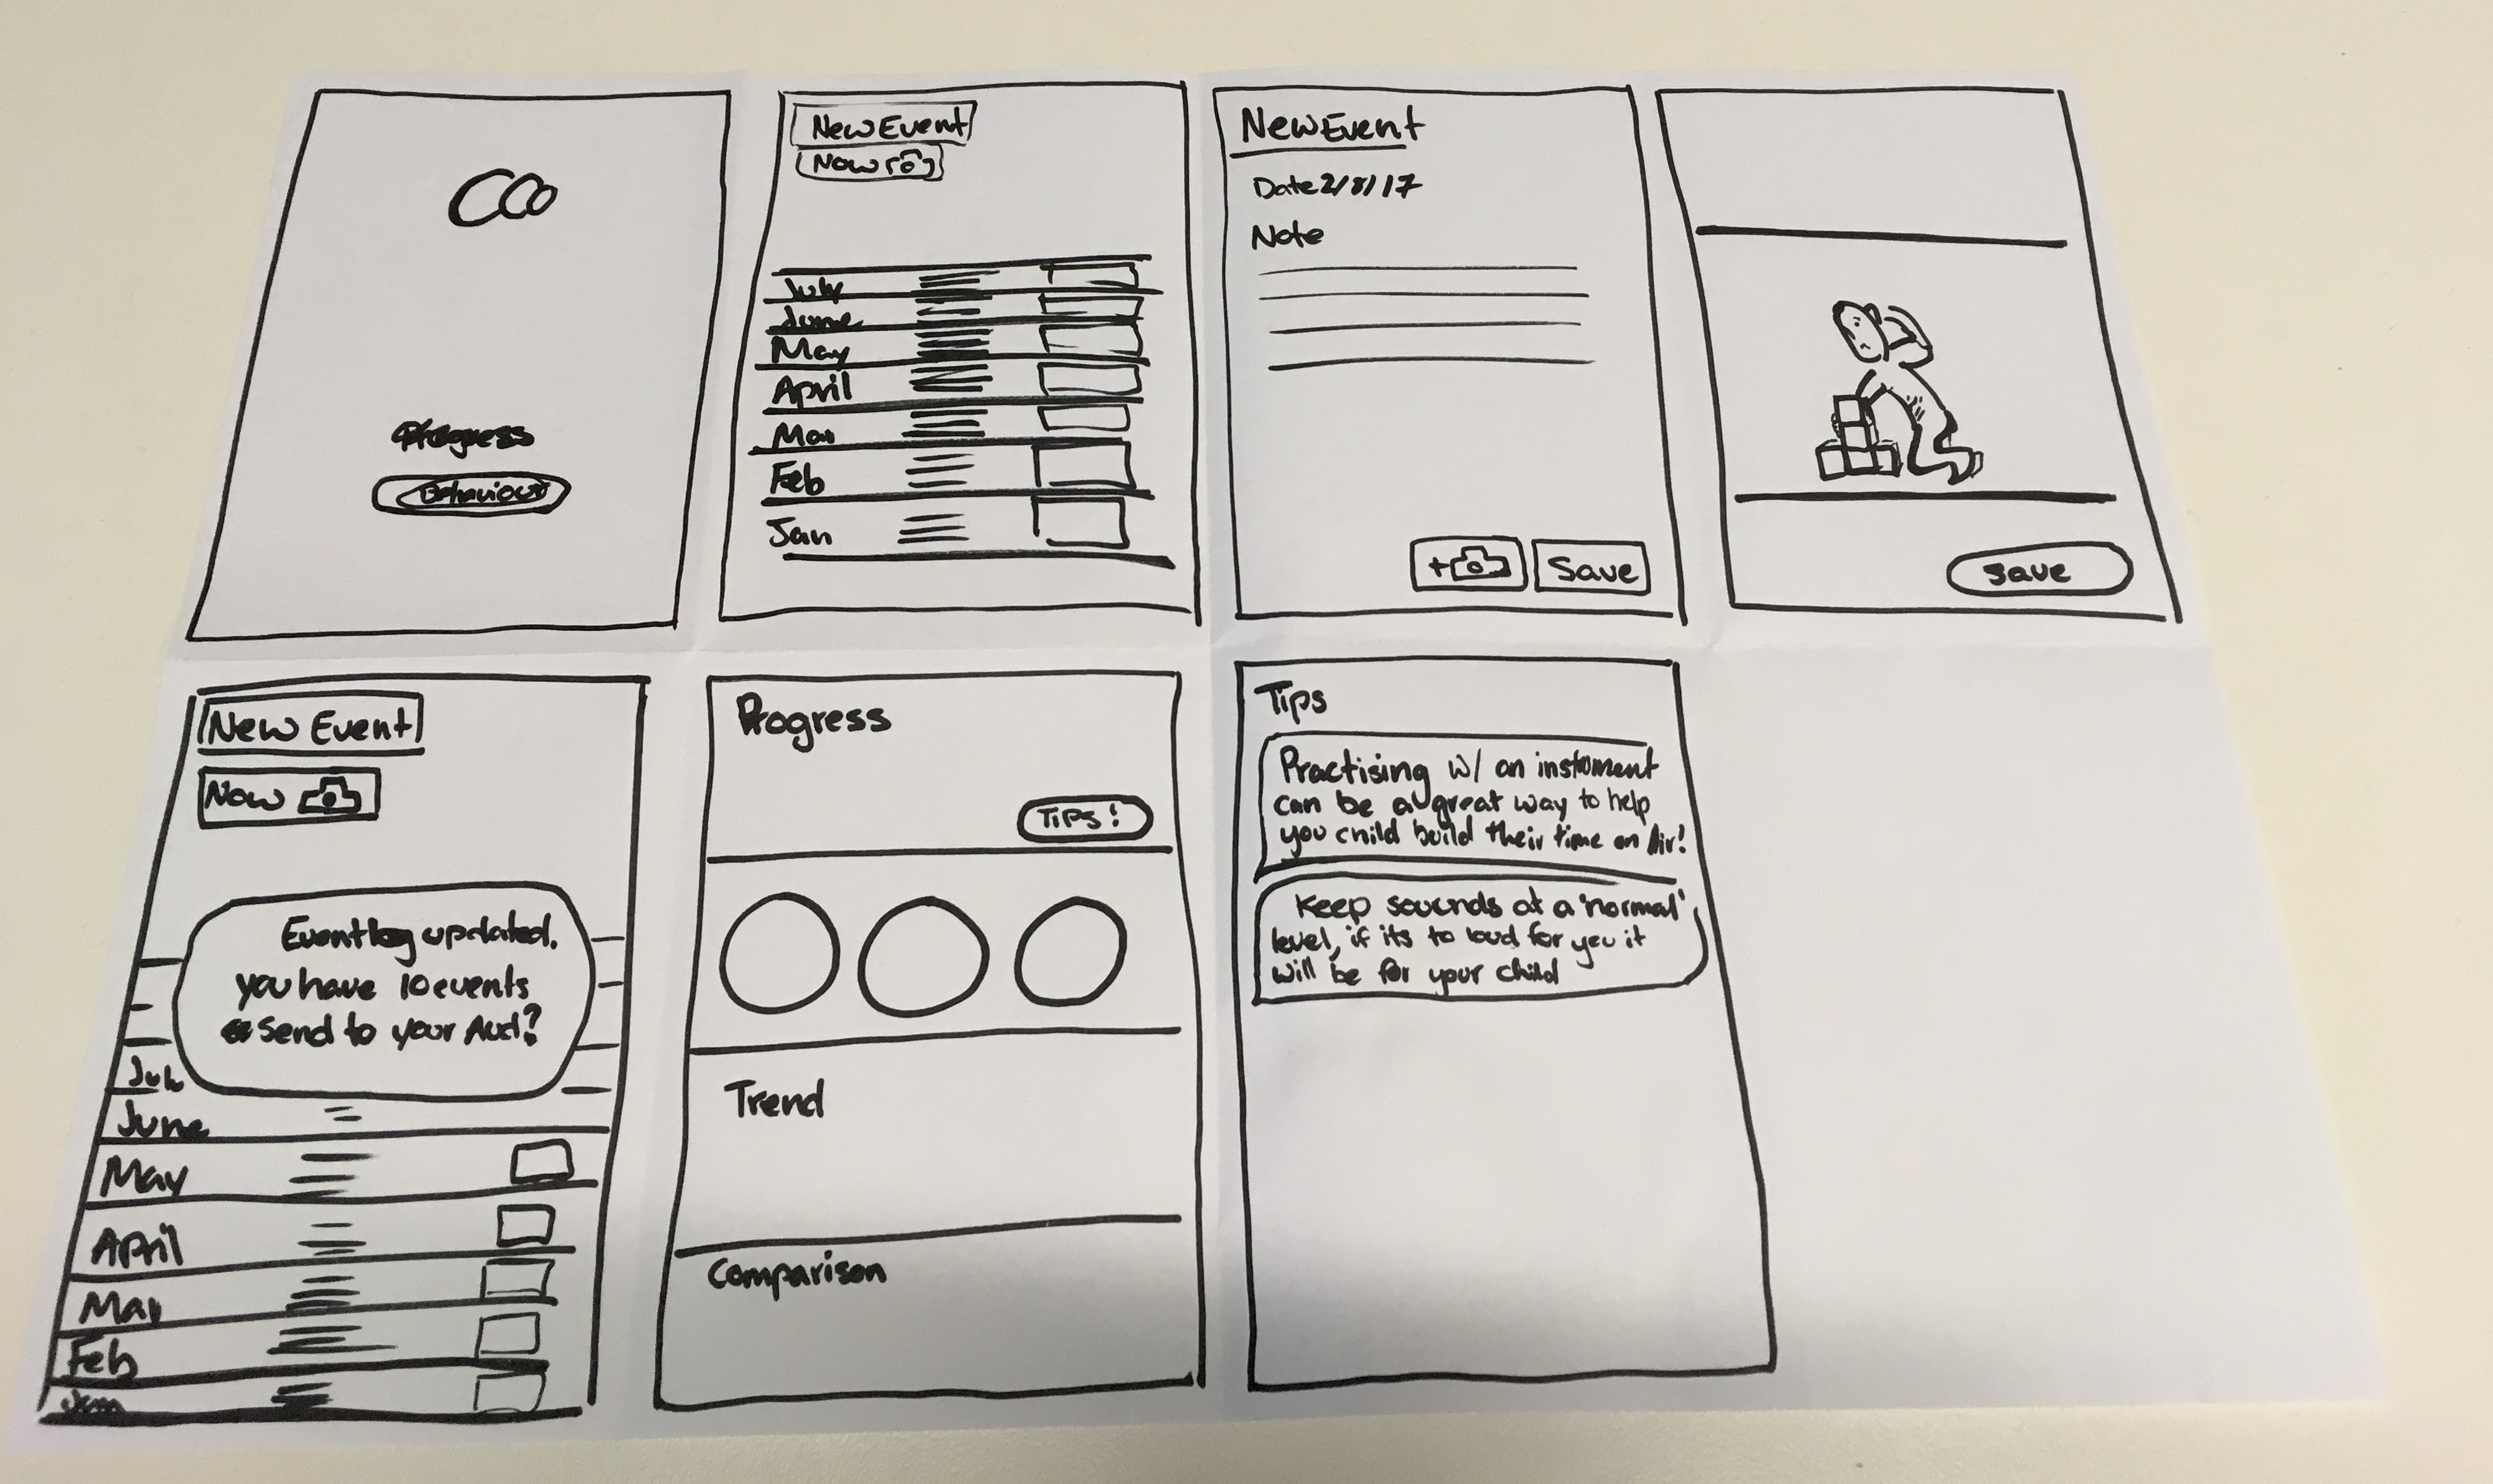 Progress
Behaviour
New Event
Now
July
June
May
April
Mar
Feb
Jan
New Event
Date 2/8/17
Note
+
Save
Save
New Event
Now
Event log updated.
you have 10 events
send to your Aud?
July
June
May
April
Mar
Feb
Jan
Progress
TIPS!
Trend
Comparison
Tips
Practising w/ an instrument
can be a great way to help
you child build their time on Air!
Keep sounds at a 'normal'
level, if its to loud for you it
will be for your child